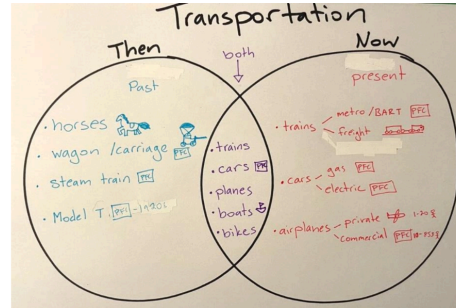 Transportation
Then
both
Now
Past
present
• horses
• wagon/carriage PFC
• steam train PFC
• Model T.
• trains
• cars
• planes
• boats
• bikes
• trains
metro/BART PFC
freight
• cars
gas PFC
electric PFC
• airplanes
private
commercial PFC